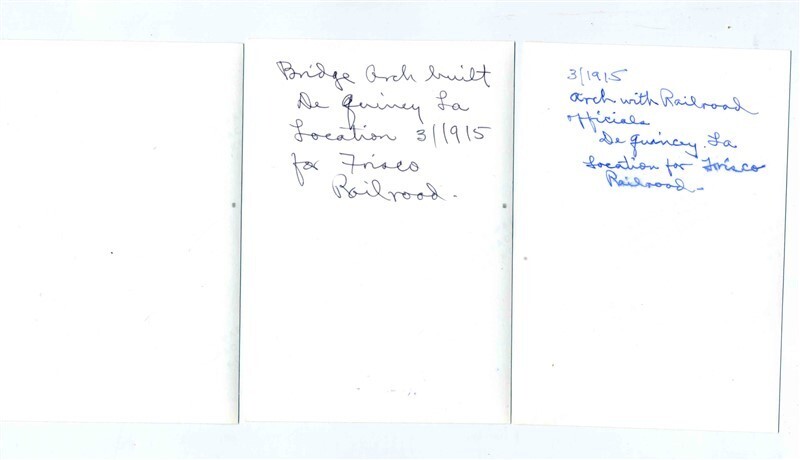 Bridge Arch built
De Quincy La
Location 3/1915
for Frisco
Railroad.
3/1915
Arch with Railroad
officials
De Quincey. La
Location for Frisco
Railroad-